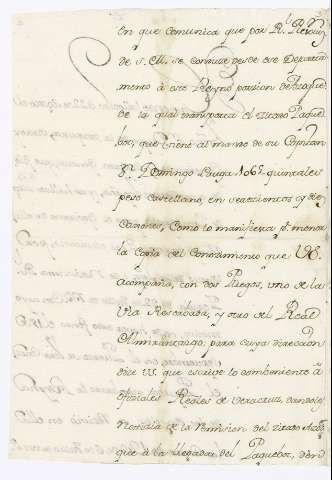 en que comunica que por Rl. Resoluon
de S.M. se conduce desde ese Departa
mento â este Reyno porcion de Azogue
de la qual transporta el citado Paque
bot, que viene al mando de su Capitan
Dn. Domingo 1065 quintales
peso castellano, en setecientos y diez
Caxones, como lo manifiesta pr. menor
la Copia del Conocimiento que V.S.
acompaña, con dos Pliegos, uno de la
via Reservada, y otro del Real
Almirantazgo; para cuya direccion
dice V.S. que escrive lo combeniente â
oficiales Reales de Veracruz, dandoles
noticia de la Remision del citado Azog
que â la llegada del Paquebot, darè